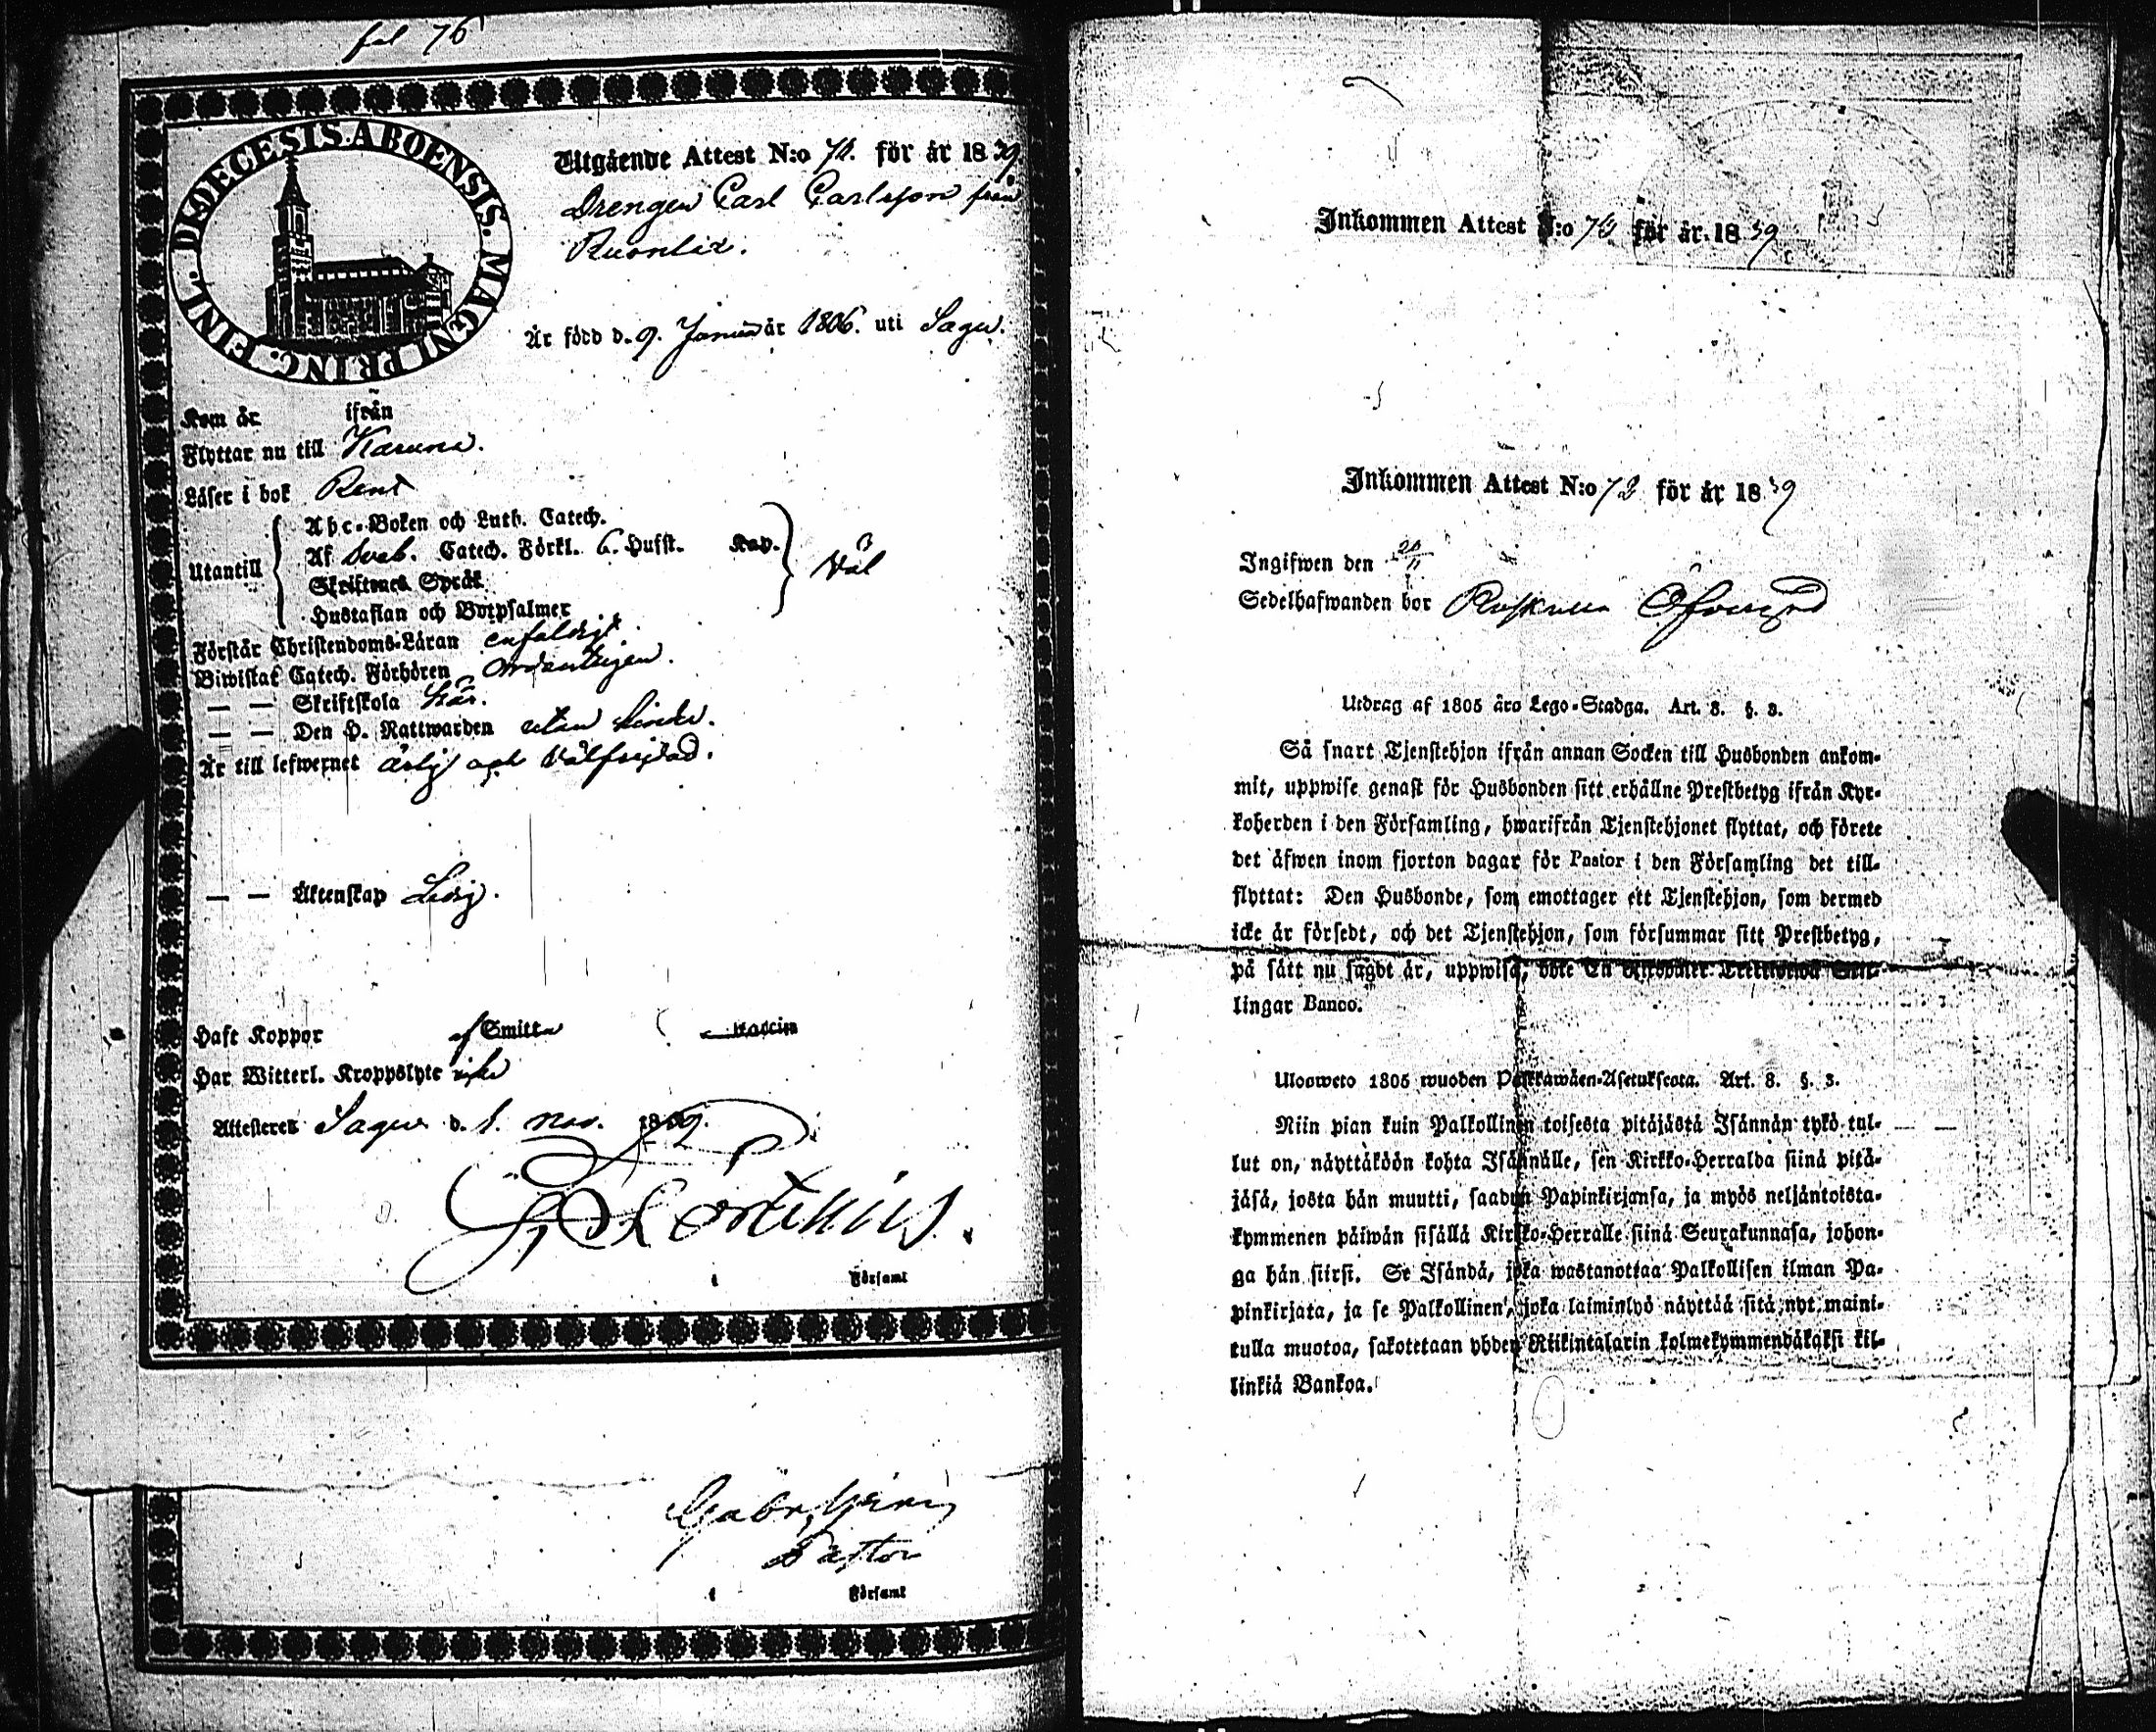 fol 76
DIOECESIS ABOENSIS. MAGNI PRINC. FINL.
Utgående Attest N:o för år 1839
Drengen Carl Carlsson från
Är född d. 9. Januari år 1806. uti Sagu.
Kom år ifrån
Flyttar nu till Karuna.
Läser i bok Rent
Utantill
Abc-Boken och Luth. Catech.
Af Sveb. Catech. Förkl. 6. Hufst. Kap.
Skriftenes Språk
Hustaflan och Botpsalmer
väl
Förstår Christendoms-Läran enfaldigt
Biwistat Catech. Förhören ordentligen.
— — Skriftskola här.
— — Den H. Nattwarden utan hinder.
Är till lefwernet ärlig och välfrejdad.
— — Äktenskap Ledig.
Haft Koppor af Smitta Vaccin
Har Witterl. Kroppslyte icke
Attesterer Sagu d. 1. nov. 1839.
i Församl
Pastor
i Församl
Inkommen Attest N:o för år 1839
Inkommen Attest N:o 72 för år 1839
Ingifwen den 20/11
Sedelhafwanden bor
Utdrag af 1805 års Lego-Stadga. Art. 8. §. 3.
Så snart Tjenstehjon ifrån annan Socken till Husbonden ankom-
mit, uppwise genast för Husbonden sitt erhållne Prestbetyg ifrån Kyr-
koherden i den Församling, hwarifrån Tjenstehjonet flyttat, och förete
det äfwen inom fjorton dagar för Pastor i den Församling det till-
flyttat: Den Husbonde, som emottager ett Tjenstehjon, som dermed
icke är försedt, och det Tjenstehjon, som försummar sitt Prestbetyg,
på sätt nu sagdt är, uppwisa, böte En Riksdaler Trettiotvå Skil-
lingar Banco.
Ulosweto 1805 wuoden Palkkawäen-Asetuksesta. Art. 8. §. 3.
Niin pian kuin Palkollinen toisesta pitäjästä Isännän tykö tul-
lut on, näyttäköön kohta Isännälle, sen Kirkko-Herralda siinä pitä-
jäsä, josta hän muutti, saadun Papinkirjansa, ja myös neljäntoista-
kymmenen päiwän sisällä Kirkko-Herralle siinä Seurakunnasa, johon-
ga hän siirsi. Se Isändä, joka wastanottaa Palkollisen ilman Pa-
pinkirjata, ja se Palkollinen, joka laiminlyö näyttää sitä nyt maini-
tulla muotoa, sakotetaan yhden Riikintalarin kolmekymmendäkaksi kil-
linkiä Bankoa.